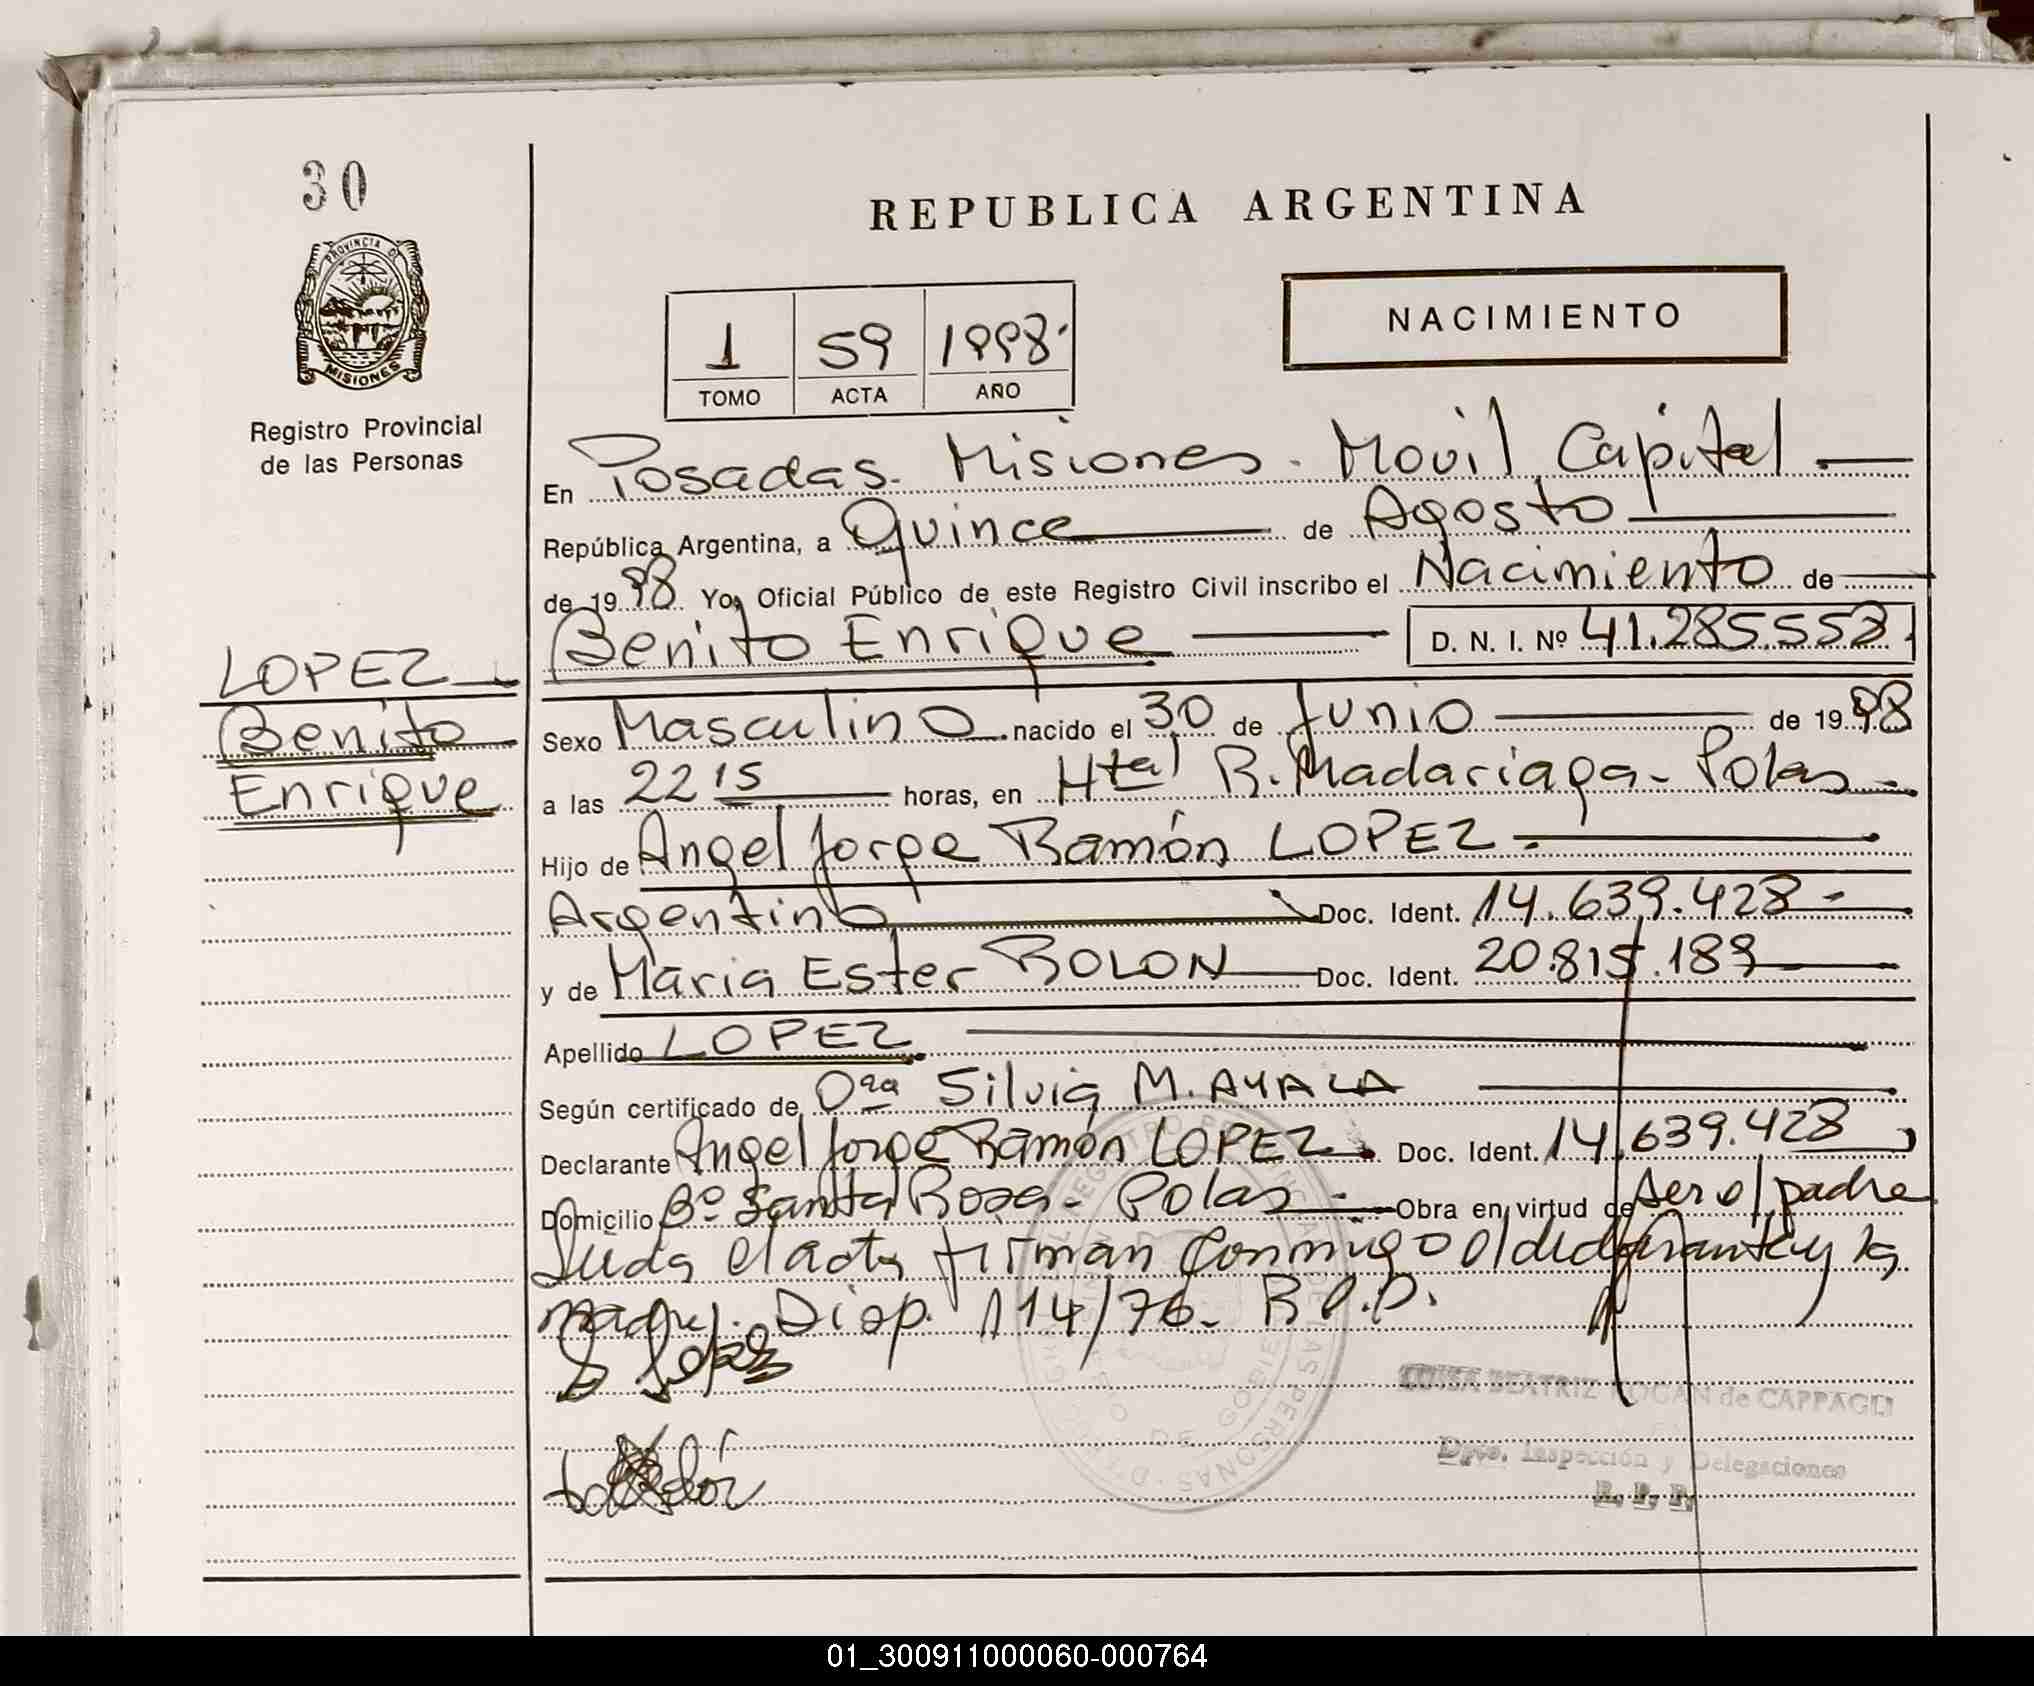 30
REPUBLICA ARGENTINA
PROVINCIA DE
MISIONES
Registro Provincial
de las Personas
1 59 1998.
TOMO ACTA AÑO
NACIMIENTO
En Posadas. Misiones. Movil Capital
República Argentina, a Quince de Agosto
de 1998 Yo, Oficial Público de este Registro Civil inscribo el Nacimiento de
Benito Enrique D. N. I. Nº 41.285.553
LOPEZ
Benito
Enrique
Sexo Masculino nacido el 30 de Junio de 1998
a las 22 15 horas, en Htal R. Madariaga - Pdas -
Hijo de Angel Jorge Ramón LOPEZ
Argentino Doc. Ident. 14.639.428 -
y de Maria Ester ROLON Doc. Ident. 20.815.189
Apellido LOPEZ
Según certificado de Dra Silvia M. AYALA
Declarante Angel Jorge Ramón LOPEZ Doc. Ident. 14.639.428
Domicilio Bº Santa Rosa - Pdas - Obra en virtud de ser el padre
Leida el acta firman conmigo el declarante y la
madre. Disp. 114/76 - R.P.P.
LUISA BEATRIZ KOGAN de CAPPAGLI
Dpto. Inspección y Delegaciones
R. P. P.
01_300911000060-000764